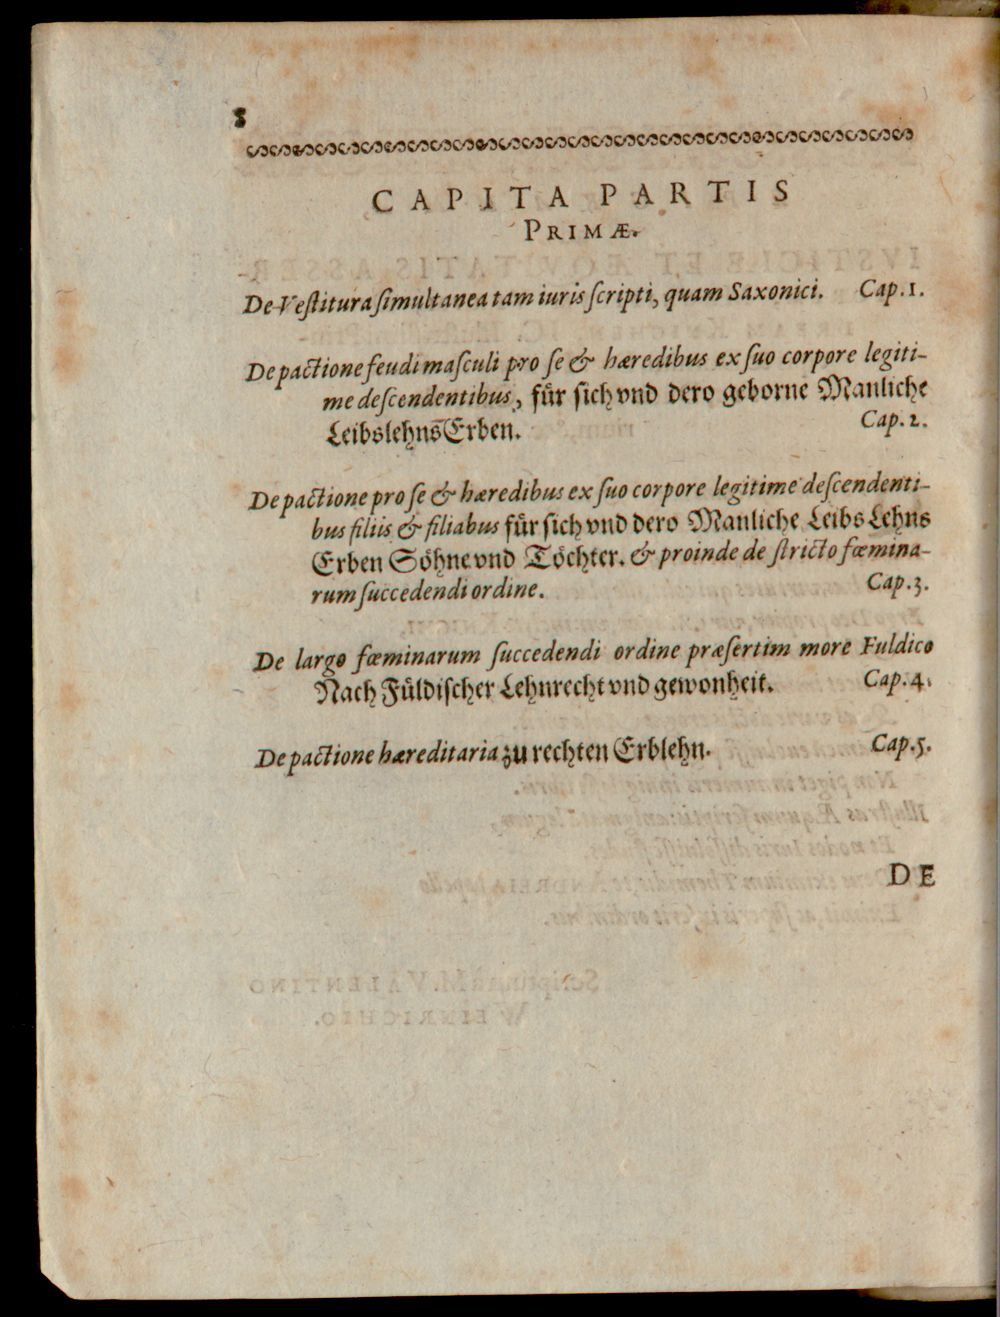 8
CAPITA PARTIS
PRIMÆ.
De Veſtitura ſimultanea tam iuris ſcripti, quam Saxonici. Cap. 1.
De pactione feudi maſculi pro ſe & hæredibus ex ſuo corpore legiti-
me deſcendentibus, fuͤr ſich vnd dero geborne Manliche
Leibslehns Erben. Cap. 2.
De pactione pro ſe & hæredibus ex ſuo corpore legitime deſcendenti-
bus filiis & filiabus fuͤr ſich vnd dero Manliche Leibs Lehns
Erben Soͤhne vnd Toͤchter. & proinde de ſtricto fœmina-
rum ſuccedendi ordine. Cap. 3.
De largo fœminarum ſuccedendi ordine præſertim more Fuldico
Nach Fuͤldiſcher Lehnrecht vnd gewonheit. Cap. 4.
De pactione hæreditaria zu rechten Erblehn. Cap. 5.
DE